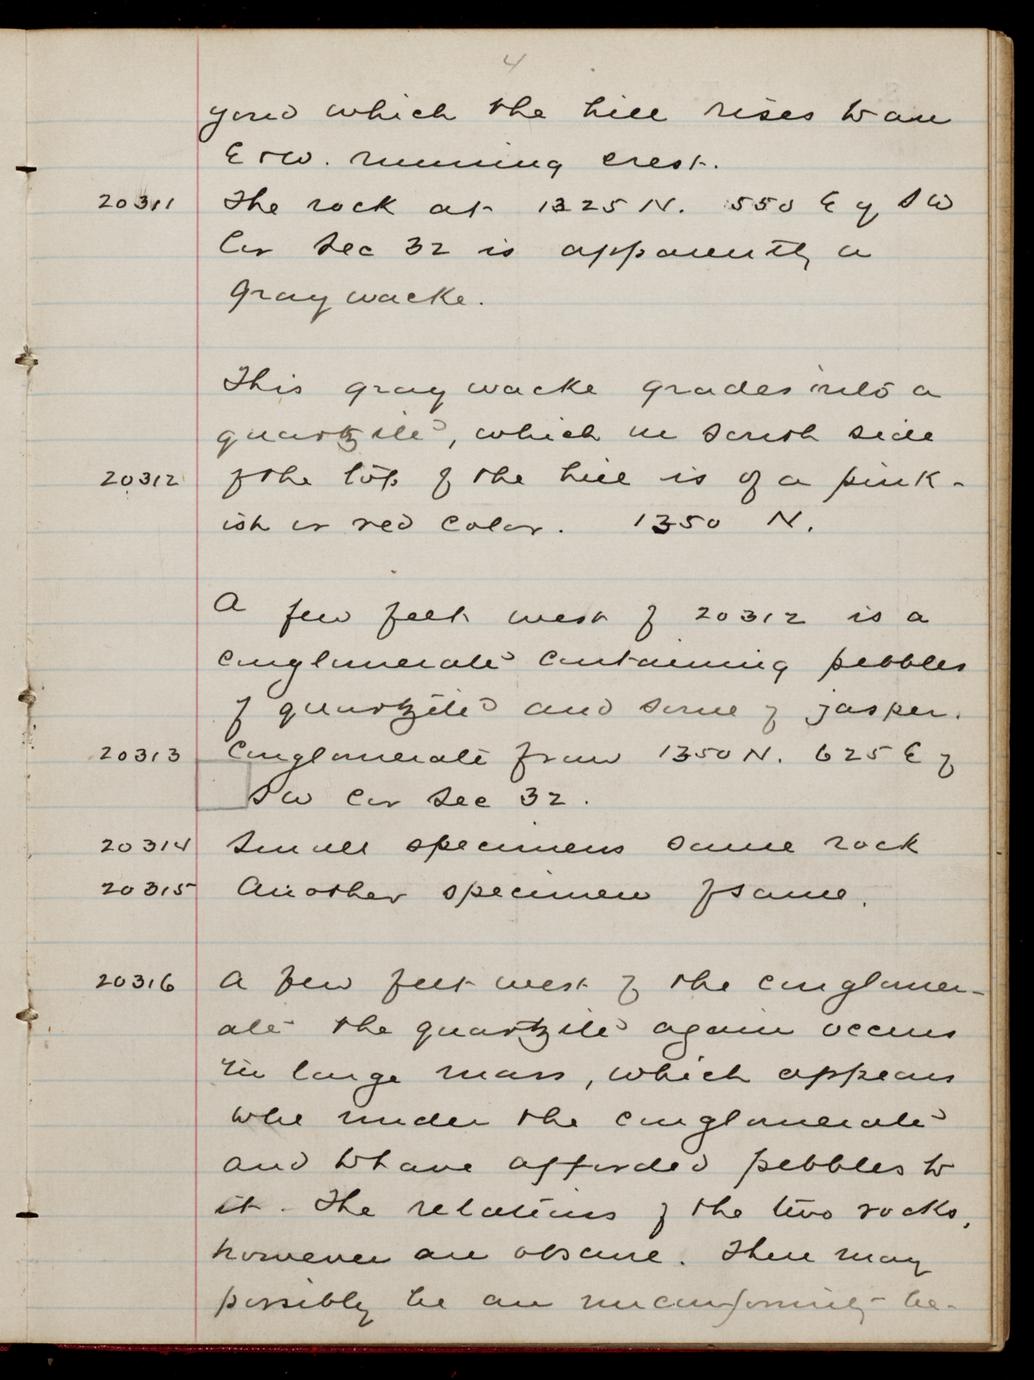 4
yond which the hill rises to an
E & W. running crest.
20311 The rock at 1325 N. 550 E of SW
Cor Sec 32 is apparently a
graywacke.
This graywacke grades into a
quartzite, which on south side
20312 of the top of the hill is of a pink-
ish or red color. 1350 N.
A few feet west of 20312 is a
conglomerate containing pebbles
of quartzite and some of jasper.
20313 Conglomerate from 1350 N. 625 E of
SW Cor Sec 32.
20314 Small specimens same rock
20315 Another specimen of same.
20316 A few feet west of the conglomer-
ate the quartzite again occurs
in large mass, which appears
to be under the conglomerate
and to have afforded pebbles to
it. The relations of the two rocks,
however are obscure. There may
possibly be an unconformity be-